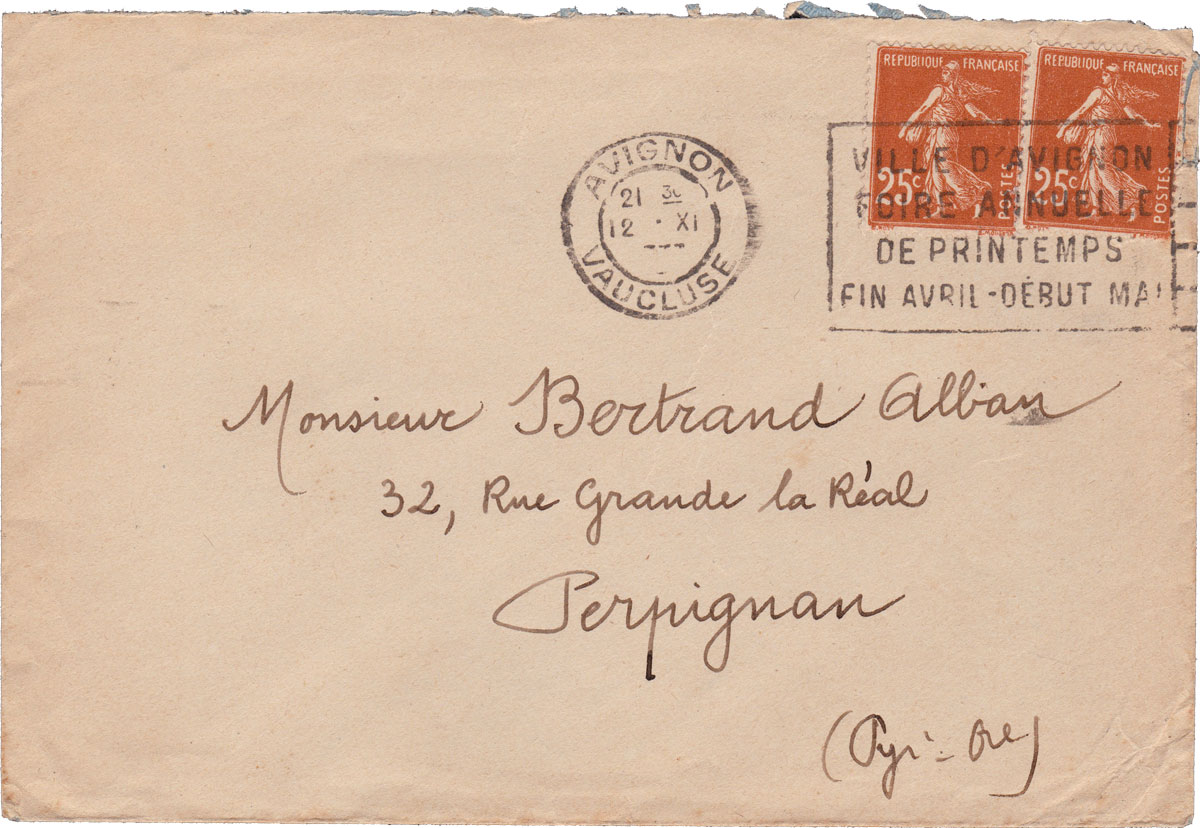 RÉPUBLIQUE FRANÇAISE
25c POSTES
RÉPUBLIQUE FRANÇAISE
25c POSTES
AVIGNON
21 30
12 · XI
VAUCLUSE
VILLE D'AVIGNON
FOIRE ANNUELLE
DE PRINTEMPS
FIN AVRIL-DÉBUT MAI
Monsieur Bertrand Alban
32, Rue Grande la Réal
Perpignan
(Pyr-Ore)